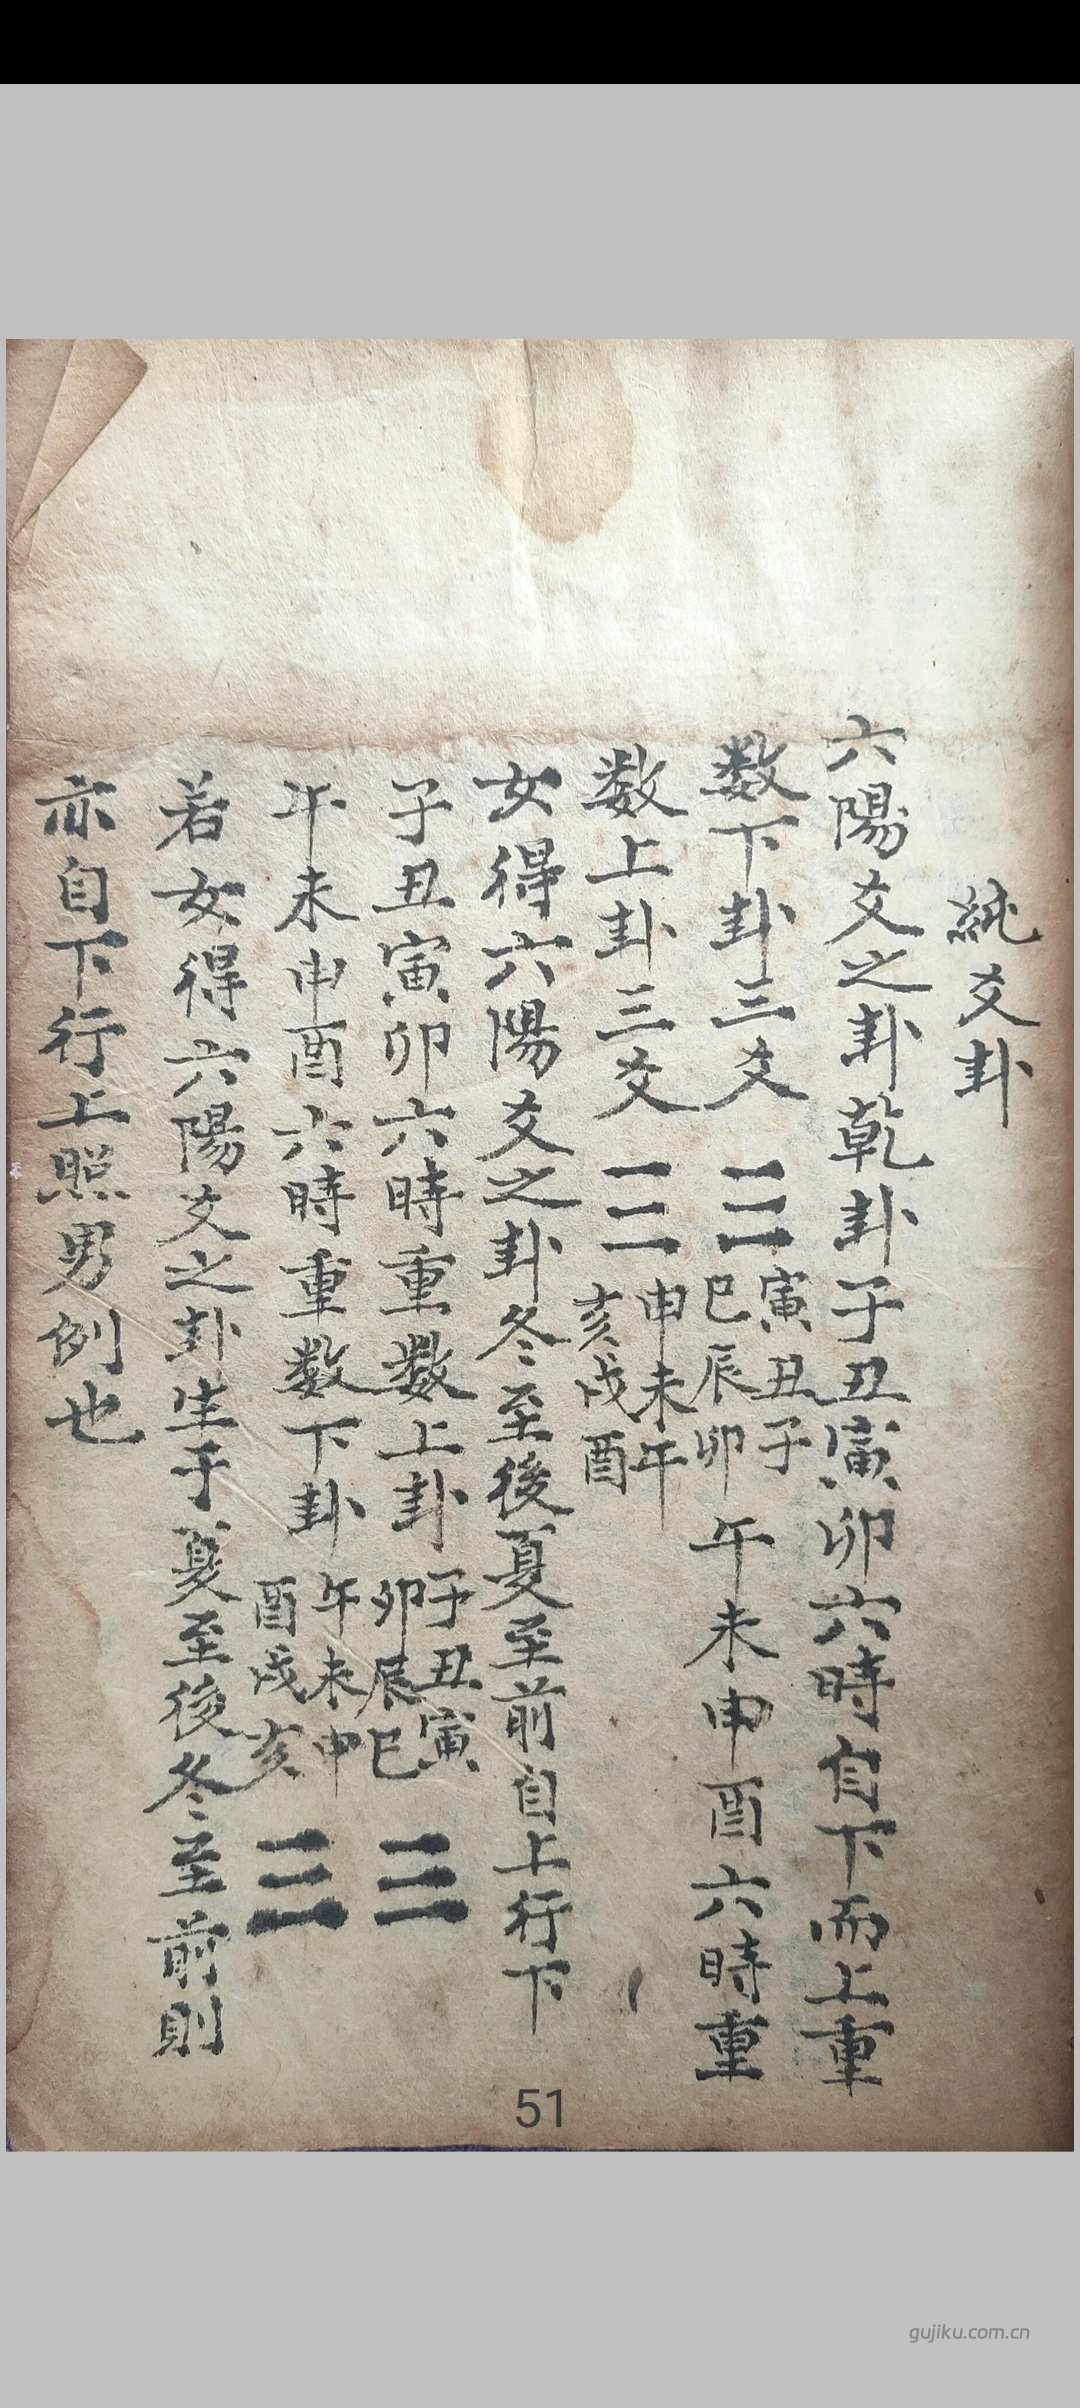 純爻卦
六陽爻之卦乾卦子丑寅卯六時自下而上重
数下卦三爻 ☰ 寅丑子 巳辰卯 午未申酉六時重
数上卦三爻 ☰ 申未午 亥戌酉
女得六陽爻之卦冬至後夏至前自上行下
子丑寅卯六時重数上卦 子丑寅 卯辰巳 ☰
午未申酉六時重数下卦 午未申 酉戌亥 ☰
若女得六陽爻之卦生于夏至後冬至前則
亦自下行上照男例也
51
gujiku.com.cn